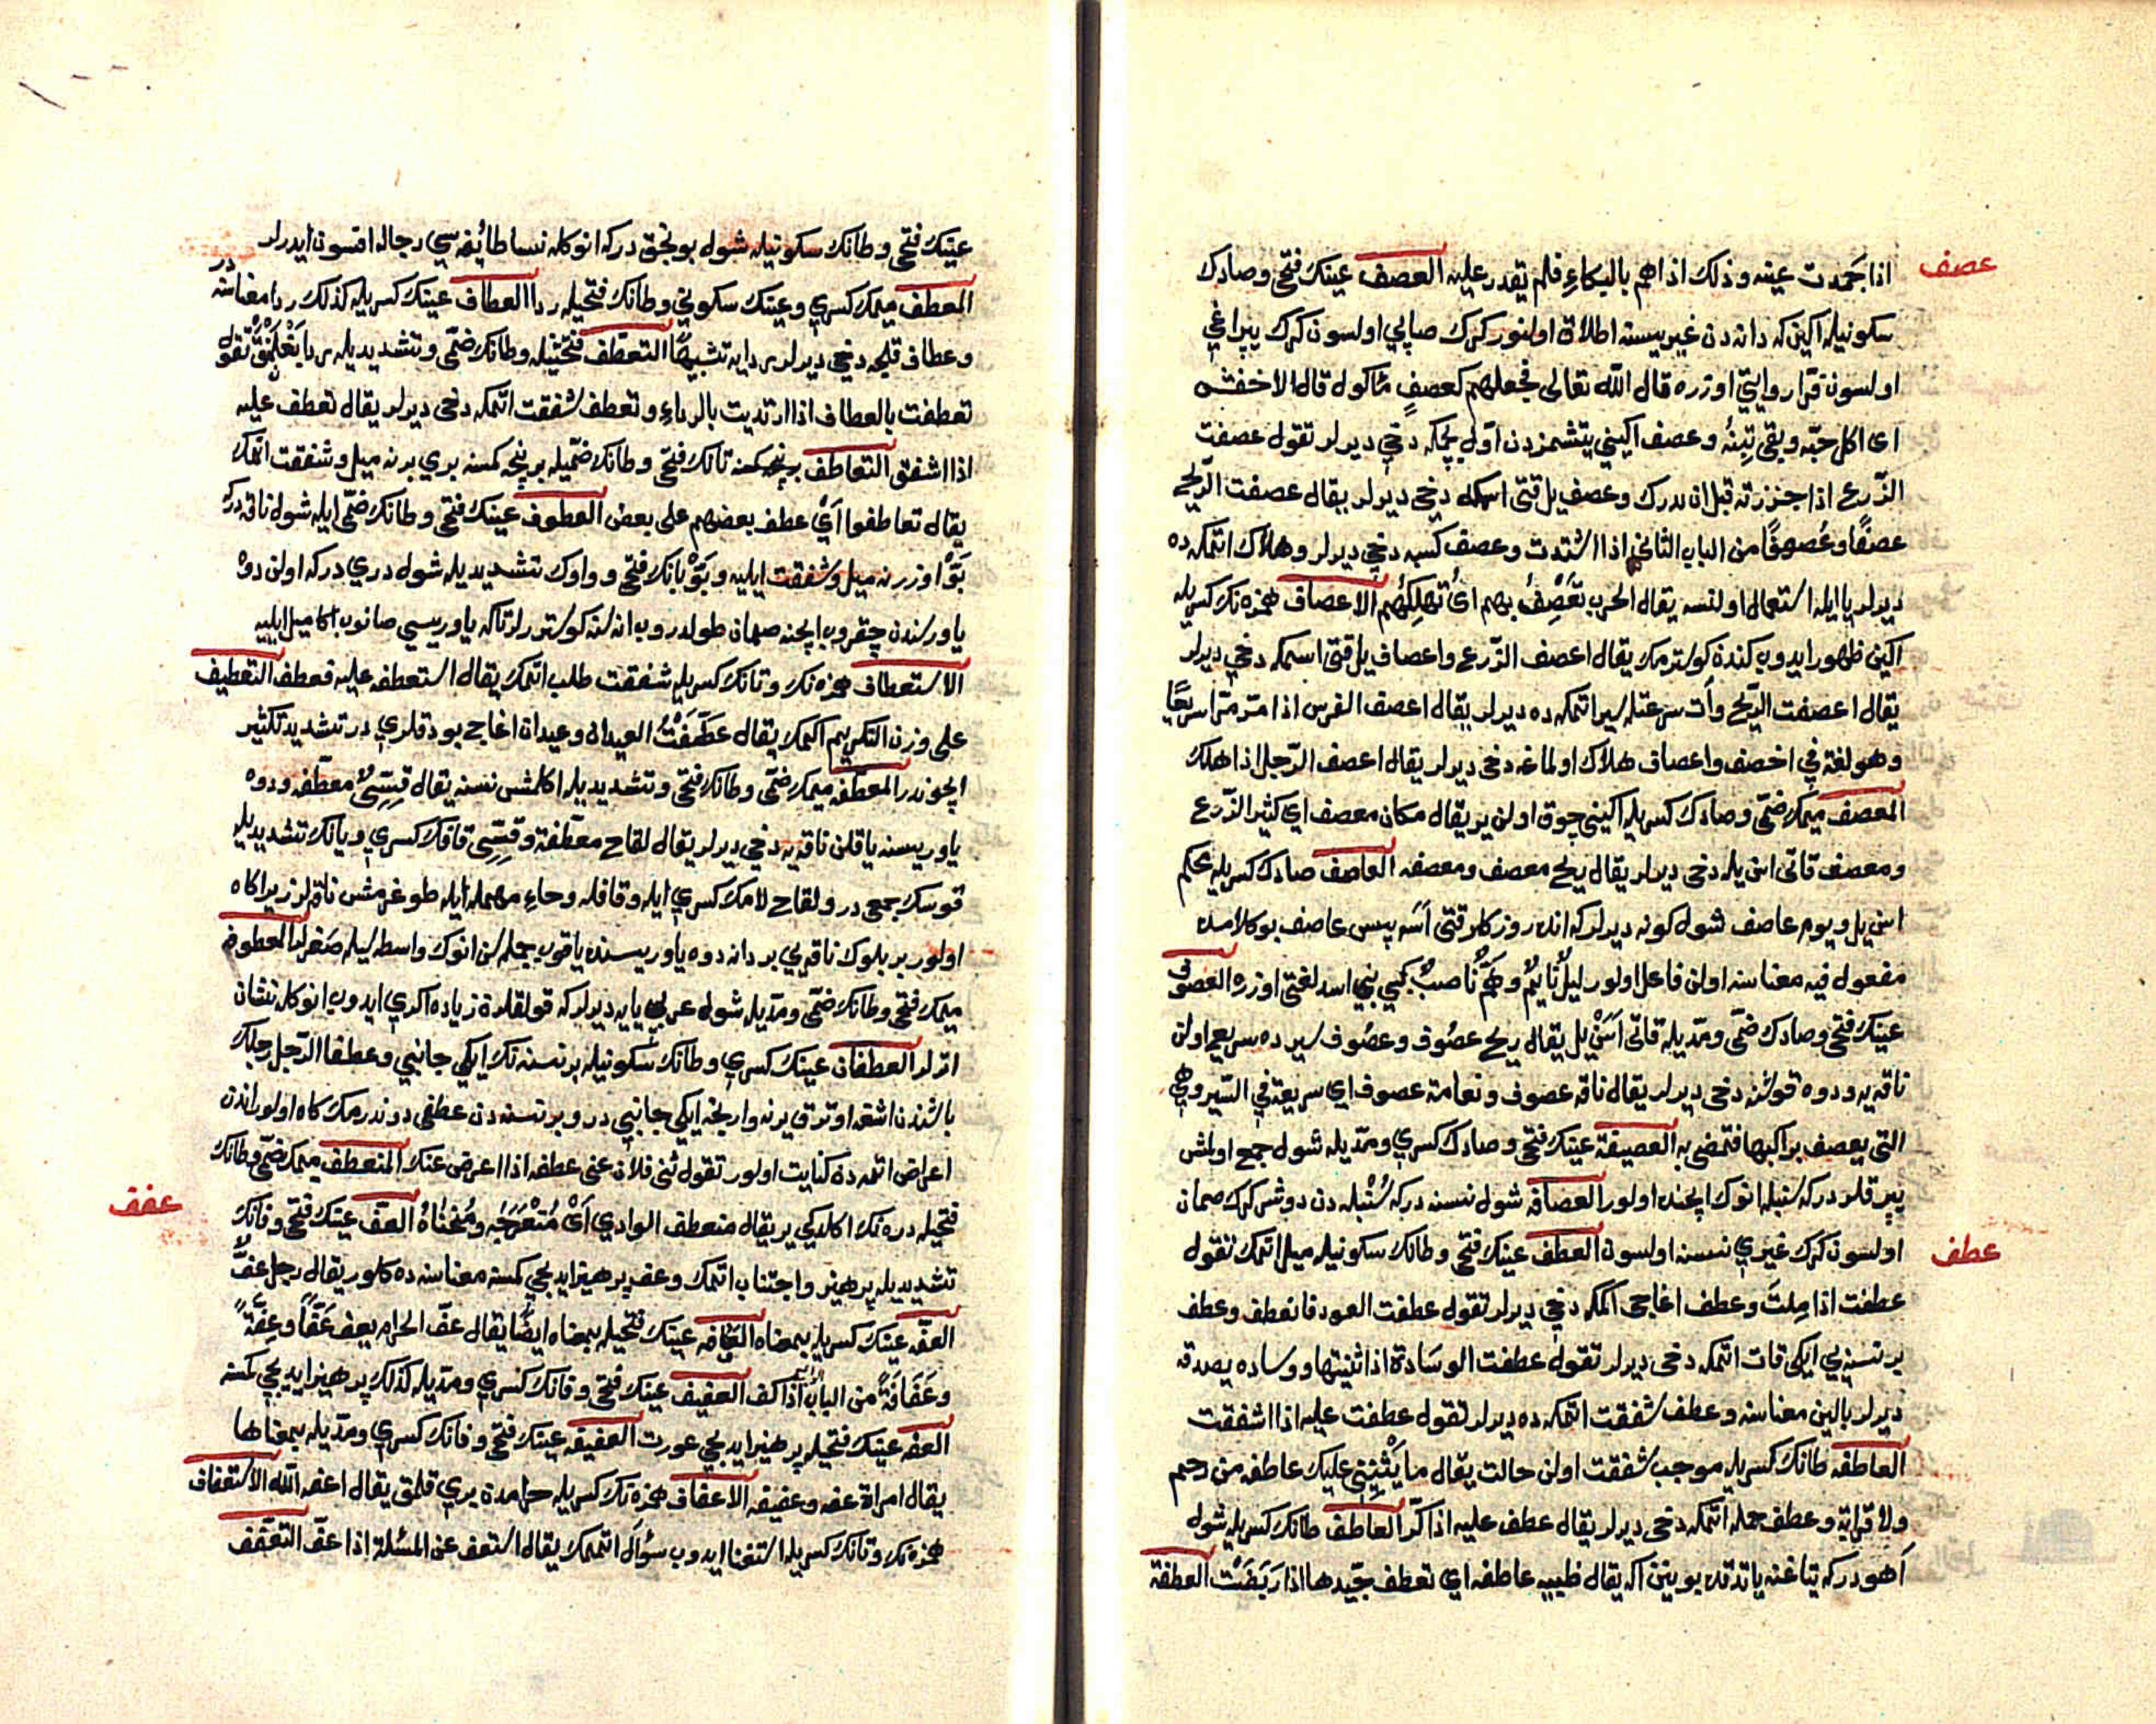 عصف
اذا جمدت عينه وذلك اذا هم بالبكاءِ فلم يقدر عليه العصف عينك فتحى وصادك
سكونيله اكين كه دانه دن غيريسنه اطلاق اولنور كرك صاپى اولسون كرك يپراغى
اولسون قرار روايتى اوزره قال الله تعالى فجعلهم كعصفٍ مأكول قال الاخفش
اى اكل حبّه وبقى تِبنُهُ وعصف اكينى يتشمزدن اوّل بچمكه دخى ديرلر تقول عصفت
الزّرع اذا جززته قبل ان يدرك وعصف يل قتى اسمكه دخى ديرلر يقال عصفت الرّيح
عصفًا وعُصوفًا من الباب الثانى اذا اشتدت وعصف كسبه دخى ديرلر وهلاك اتمكه ده
ديرلر با ايله استعمال اولنسه يقال الحرب تَعْصِفُ بهم اىْ تُهلِكُهُم الاعصاف همزه نك كسريله
اكين ظهور ايدوب كندو كوسترمك يقال اعصف الزّرع واعصاف يل قتى اسمكه دخى ديرلر
يقال اعصفت الرّيح وات سرعتله سير اتمكه ده ديرلر يقال اعصف الفرس اذا مرّ مرّا سريعًا
وهو لغة فى اخصف واعصاف هلاك اولماغه دخى ديرلر يقال اعصف الرّجل اذا هلك
المعصف ميمك ضمّى وصادك كسريله اكينى چوق اولن ير يقال مكان معصف اى كثير الزّرع
ومعصف قاتى اسن يله دخى ديرلر يقال ريح معصف ومعصفه العاصف صادك كسريله محكم
اسن يل ويوم عاصف شول كونه ديرلر كه انده روزكار قتى اسه پس عاصف بو كلامده
مفعول فيه معناسنه اولن فاعل اولور ليلٌ نايمٌ وهَمٌّ ناصبٌ كبى بنى اسد لغتى اوزره العصوف
عينك فتحى وصادك ضمّى ومدّيله قاتى اَسَنْ يل يقال ريح عصُوف وعصُوف سيرده سريع اولن
ناقه يه ودوه قوشنه دخى ديرلر يقال ناقه عصوف ونعامة عصوف اى سريعة فى السّير وهى
التى يعصف براكبها فتمضى به العصيفة عينك فتحى وصادك كسرى ومدّيله شول جمع اولمش
يپرقلردر كه سنبله انوك ايچنده اولور العصافه شول نسنه دركه سُنْبله دن دوشر كرك صمان
عطف
اولسون كرك غيرى نسنه اولسون العطف عينك فتحى وطانك سكونيله ميل اتمك تقول
عطفت اذا مِلتَ وعطف اغاجى اكمكه دخى ديرلر تقول عطفت العود فانعطف وعطف
بر نسنه يى ايكى قات اتمكه دخى ديرلر تقول عطفت الوسَادة اذا ثنيتها ووساده يصدقه
ديرلر بالين معناسنه وعطف شفقت اتمكه ده ديرلر تقول عطفت عليه اذا اشفقت
العاطفه طانك كسريله موجب شفقت اولن حالت يقال ما يَثْنِينى عليك عاطفه من رحم
ولا قرابة وعطف حمله اتمكه دخى ديرلر يقال عطف عليه اذا كرّ العاطف طانك كسريله شول
اَهودر كه يتاغنه ياتدقده بوينين اكه يقال ظبيه عاطفه اى تعطف جيّدها اذا رَبَضَت العطفة
عينك فتحى وطانك سكونيله شول بونجق دركه انوكله نسا طائفه سى رجاله افسون ايدرلر
المعطف ميمك كسرى وعينك سكونى وطانك فتحيله ردا العطاف عينك كسريله كذلك ردا معناسنه در
وعطاف قليجه دخى ديرلر ردايه تشبيهًا التعطّف فتحتيله وطانك ضمّى وتشديديله ردا بَغْلنْمَقْ تقول
تعطفت بالعطاف اذا ارتديت بالرداءِ وتعطف شفقت اتمكه دخى ديرلر يقال تعطف عليه
اذا اشفق التعاطف برنچه كمسه تانك فتحى وطانك ضمّيله برنچه كمسه برى برنه ميل وشفقت اتمك
يقال تعاطفوا اَىْ عطف بعضهم على بعض العطوف عينك فتحى وطانك ضمّى ايله شول ناقه دركه
بَوّْ اوزرنه ميل وشفقت ايليه وبَوّْ بانك فتحى وواوك تشديديله شول درى دركه اولن دوه
ياورسندن چقروب ايچنه صمان طولدروب اناسنه كوسترلر تاكه ياوريسى صانوب اكا ميل ايليه
الاستعطاف همزه نك وتانك كسريله شفقت طلب اتمك يقال استعطفه عليه فعطف التعطيف
على وزن التكريم اكمك يقال عَطَّفْتُ العيدان وعيدان اغاج بودقلرى در تشديد تكثير
ايچوندر المعطّفه ميمك ضمّى وطانك فتحى وتشديديله اكلمش نسنه يقال قِسِىٌّ معطّفه ودوه
ياوريسنه ياقلن ناقه يه دخى ديرلر يقال لقاح معطّفة وقِسِّى قافك كسرى ويانك تشديديله
قوسك جمعى در ولقاح لامك كسرى ايله وقافله وحاءِ مهمله ايله طوغرمش ناقه لر زيرا كاه
اولور بر بلوك ناقه يى بر دانه دوه ياوريسنه ياقوب جمله سن انوك واسطه سيله صغرلر المعطوف
ميمك فتحى وطانك ضمّى ومدّيله شول عربى يايه ديرلر كه قولقلرنده زياده اكرى ايدوب انوكله نشان
اترلر العطفان عينك كسرى وطانك سُكونيله بر نسنه نك ايكى جانبى وعطفا الرّجل رجلك
باشندن اشغه اوترق يرنه وارنجه ايكى جانبى در وبر نسنه دن عطفى دوندرمك كاه اولور اندن
اعراض اتمه دن كنايت اولور تقول ثنى فلان عنى عطفه اذا اعرض عنك المنعطف ميمك ضمّى وطانك
عفف
فتحيله دره نك اكلديكى ير يقال منعطف الوادى اَىْ مُنْعَرَجُه ومُنْحَناهُ العفّ عينك فتحى وفانك
تشديديله پرهيز واجتناب اتمك وعف پرهيز ايديجى كمسنه معناسنه ده كلور يقال رجل عفٌّ
العفّه عينك كسريله بمعناه العفافه عينك فتحيله بمعناه ايضًا يقال عفّ الحرام يعف عَفًّا وعِفّةً
وعَفَافَةً من الباب اذا كف العفيف عينك فتحى وفانك كسرى ومدّيله كذلك پرهيز ايديجى كمسنه
العفه عينك فتحيله پرهيز ايديجى عورت العفيفه عينك فتحى وفانك كسرى ومدّيله بمعناها
يقال امراة عفه وعفيفه الاعفاف همزه نك كسريله حرامدن برى قلمق يقال اعفه الله الاستعفاف
همزه نك وتانك كسريله استغنا ايدوب سؤال اتممك يقال استعف عن المسئلة اذا عفّ التعفّف